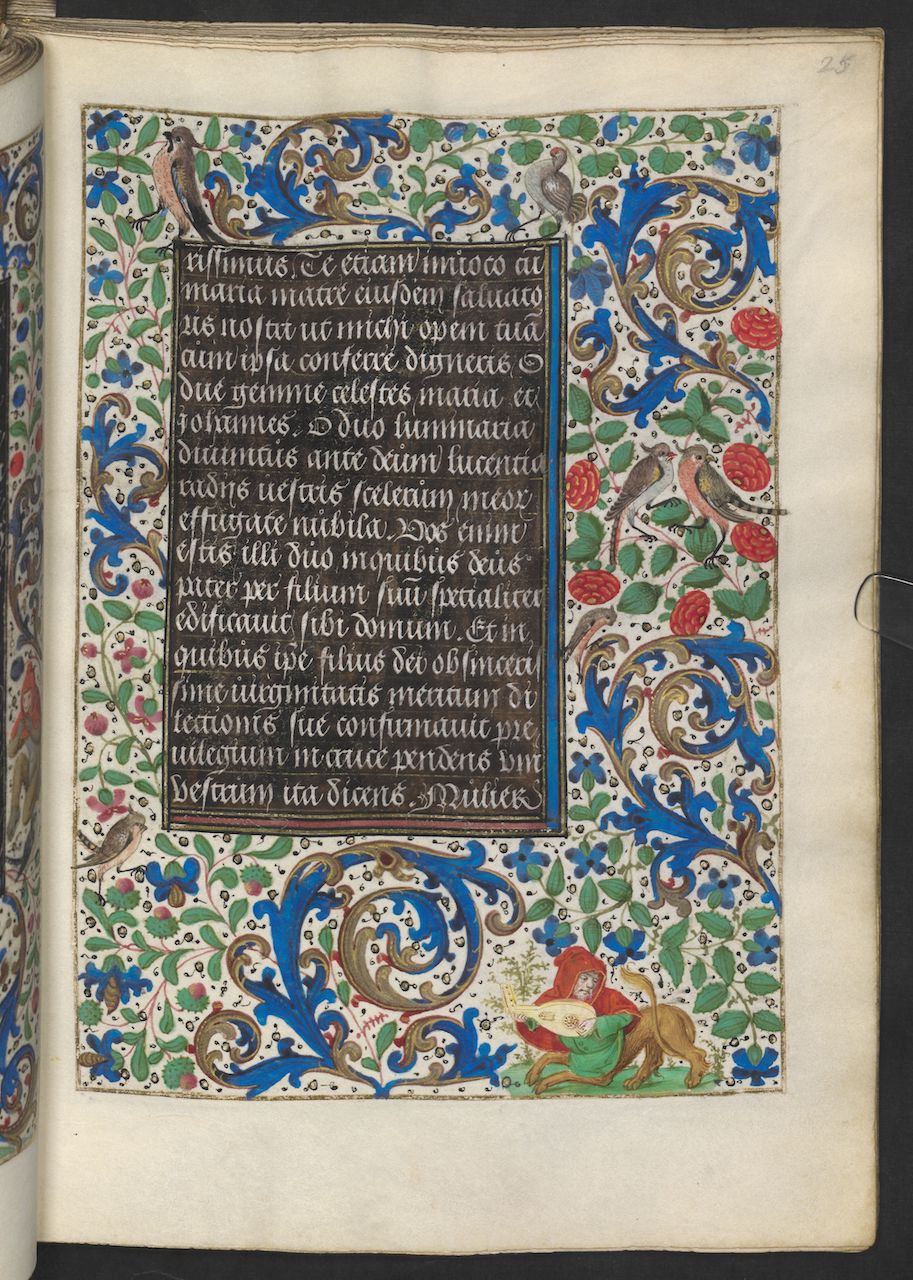 25
rissimus. Te etiam inuoco cū
maria matre eiusdem saluato
ris nostri ut michi opem tuā
cum ipsa conferre digneris O
due gemme celestes maria et
Johannes. O duo luminaria
diuinitus ante deum lucentia
radijs uestris scelerum meorꝝ
effugate nubila. Vos enim
estis illi duo in quibus deus
pater per filium suū specialiter
edificauit sibi domum. Et in
quibus ip̄e filius dei ob sinceris
sime uirginitatis meritum di
lectionis sue confirmauit pre
uilegium in cruce pendens vni
vestrum ita dicens. Mulier